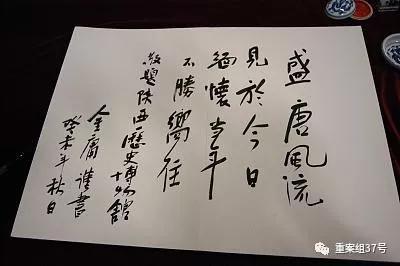 盛唐風流
見於今日
緬懷当年
不勝嚮往
敬題陕西歷史博物館
金庸謹書
癸未年秋日
重案组37号